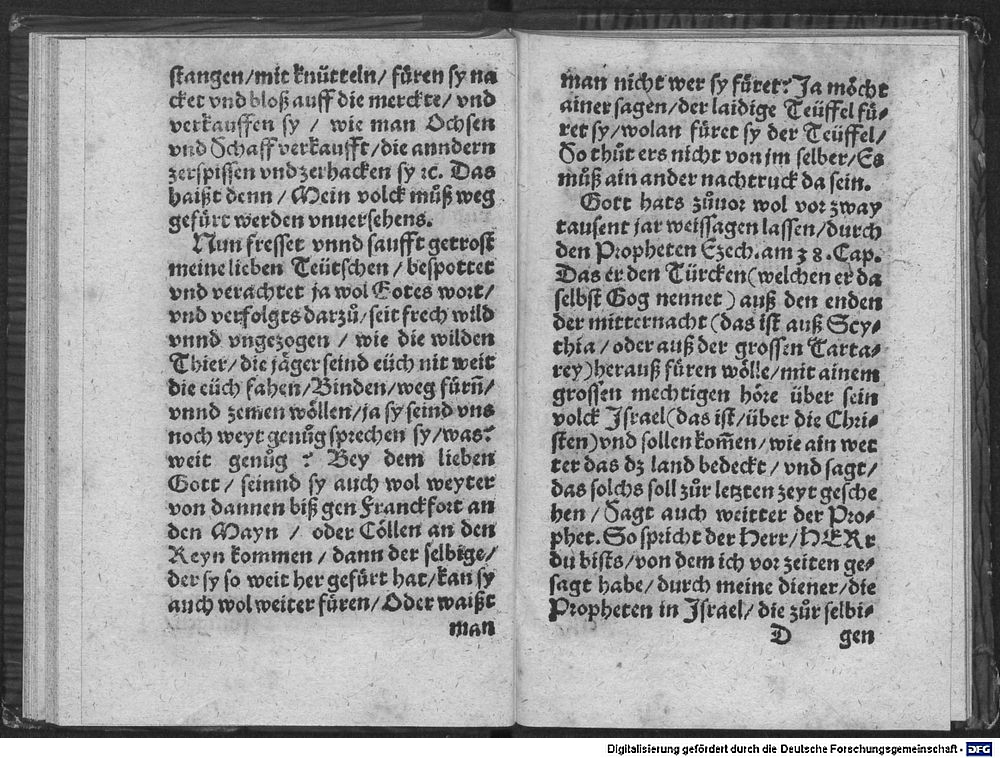 stangen/mit knütteln/ füren sy na
cket vnd bloß auff die merckte/ vnd
verkauffen sy / wie man Ochsen
vnd Schaff verkaufft/die anndern
zerspissen vnd zerhacken sy ꝛc. Das
haißt denn / Mein volck müß weg
gefürt werden vnuersehens.
Nun fresset vnnd saufft getrost
meine lieben Teütschen / bespottet
vnd verachtet ja wol Gotes wort/
vnd verfolgts darzů/ seit frech wild
vnnd vngezogen / wie die wilden
Thier/ die jäger seind eüch nit weit
die eüch fahen/Binden/weg fürn̄/
vnnd zemen wöllen/ja sy seind vns
noch weyt genůg sprechen sy/was?
weit genůg ? Bey dem lieben
Gott / seinnd sy auch wol weyter
von dannen biß gen Franckfort an
den Mayn / oder Cöllen an den
Reyn kommen / dann der selbige/
der sy so weit her gefürt hat/kan sy
auch wol weiter füren/ Oder waißt
man
man nicht wer sy füret? Ja möcht
ainer sagen/der laidige Teüffel fü⸗
ret sy/wolan füret sy der Teüffel/
So thůt ers nicht von jm selber/Es
můß ain ander nachtruck da sein.
Gott hats zůuor wol vor zway
tausent jar weissagen lassen/durch
den Propheten Ezech. am 38. Cap.
Das er den Türcken(welchen er da
selbst Gog nennet) auß den enden
der mitternacht (das ist auß Scy⸗
thia / oder auß der grossen Tarta⸗
rey)herauß füren wölle/mit ainem
grossen mechtigen höre über sein
volck Israel(das ist/über die Chri⸗
sten)vnd sollen kom̄en/wie ain wet
ter das dz land bedeckt/ vnd sagt/
das solchs soll zůr letzten zeyt gesche
hen / Sagt auch weitter der Pro⸗
phet. So spricht der Herr/HERr
du bists/von dem ich vor zeiten ge⸗
sagt habe/ durch meine diener/die
Propheten in Israel/ die zůr selbi⸗
D gen
Digitalisierung gefördert durch die Deutsche Forschungsgemeinschaft - DFG